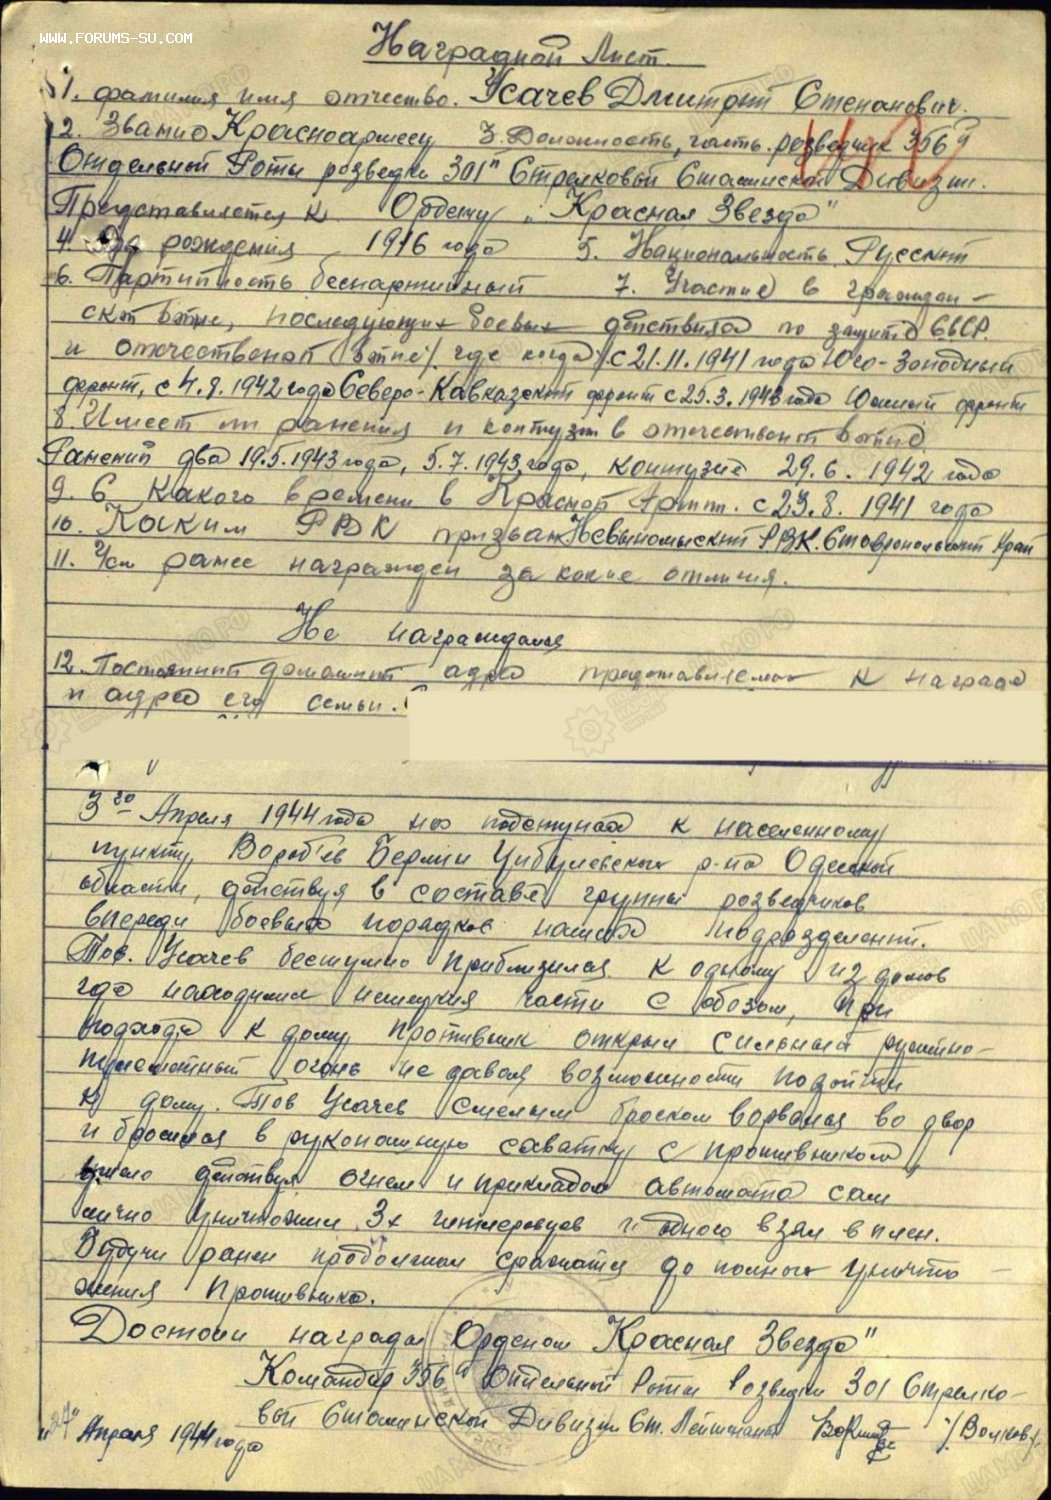 WWW.FORUMS-SU.COM
Наградной Лист.
1. фамилия имя отчество. Усачев Дмитрий Степанович.
2. Звание Красноармеец 3. Должность, часть. розведчик 356й
Отдельной Роты розведки 301й Стрелковой Сталинской Дивизии.
Представляется к Ордену „Красная Звезда"
4. Год рождения 1916 года 5. Национальность Русский
6. Партийность беспартийный 7. Участие в граждан-
ской войне, последующих боевых действиях по защите СССР.
и отечественой войне/ где когда/ с 21.11.1941 года Юго-Западный
фронт, с 4.8.1942 года Северо-Кавказский фронт с 25.3.1943 года Южный фронт
8. Имеет ли ранения и контузии в отечественой войне
Ранений два 19.5.1943 года, 5.7.1943 года, контузия 29.6.1942 года
9. С какого времени в Красной Армии. с 23.8.1941 года
10. Каким РВК призван Невиномыский РВК. Ставропольский Край
11. Чем ранее награжден за какие отличия.
Не награждался
12. Постоянный домашний адрес представляемого к награде
и адрес его семьи.
3го Апреля 1944 года на подступах к населенному
пункту Вороб'ев Берлин Цибулевского р-на Одесской
области, действуя в составе групы розведчиков
впереди боевых порядков наших подрозделений.
Тов. Усачев бесшумно приблизился к одному из домов
где находились немецкия части с обозом, при
подходе к дому противник открыл сильный ружейно-
пулеметный огонь не давая возможности подойти
к дому. Тов Усачев смелым броском ворвался во двор
и бросился в рукопашную схватку с противником,
умело действуя огнем и прикладом автомата сам
лично уничтожил 3х гитлеровцев и одного взял в плен.
Будучи ранен продолжал сражатся до полного уничто-
жения противника.
Достоин награды Орденом Красная Звезда"
Командир 356й Отдельной Роты Розведки 301 Стрелко-
вой Сталинской Дивизии Ст. Лейтенант /Волков/
„27" Апреля 1944 года